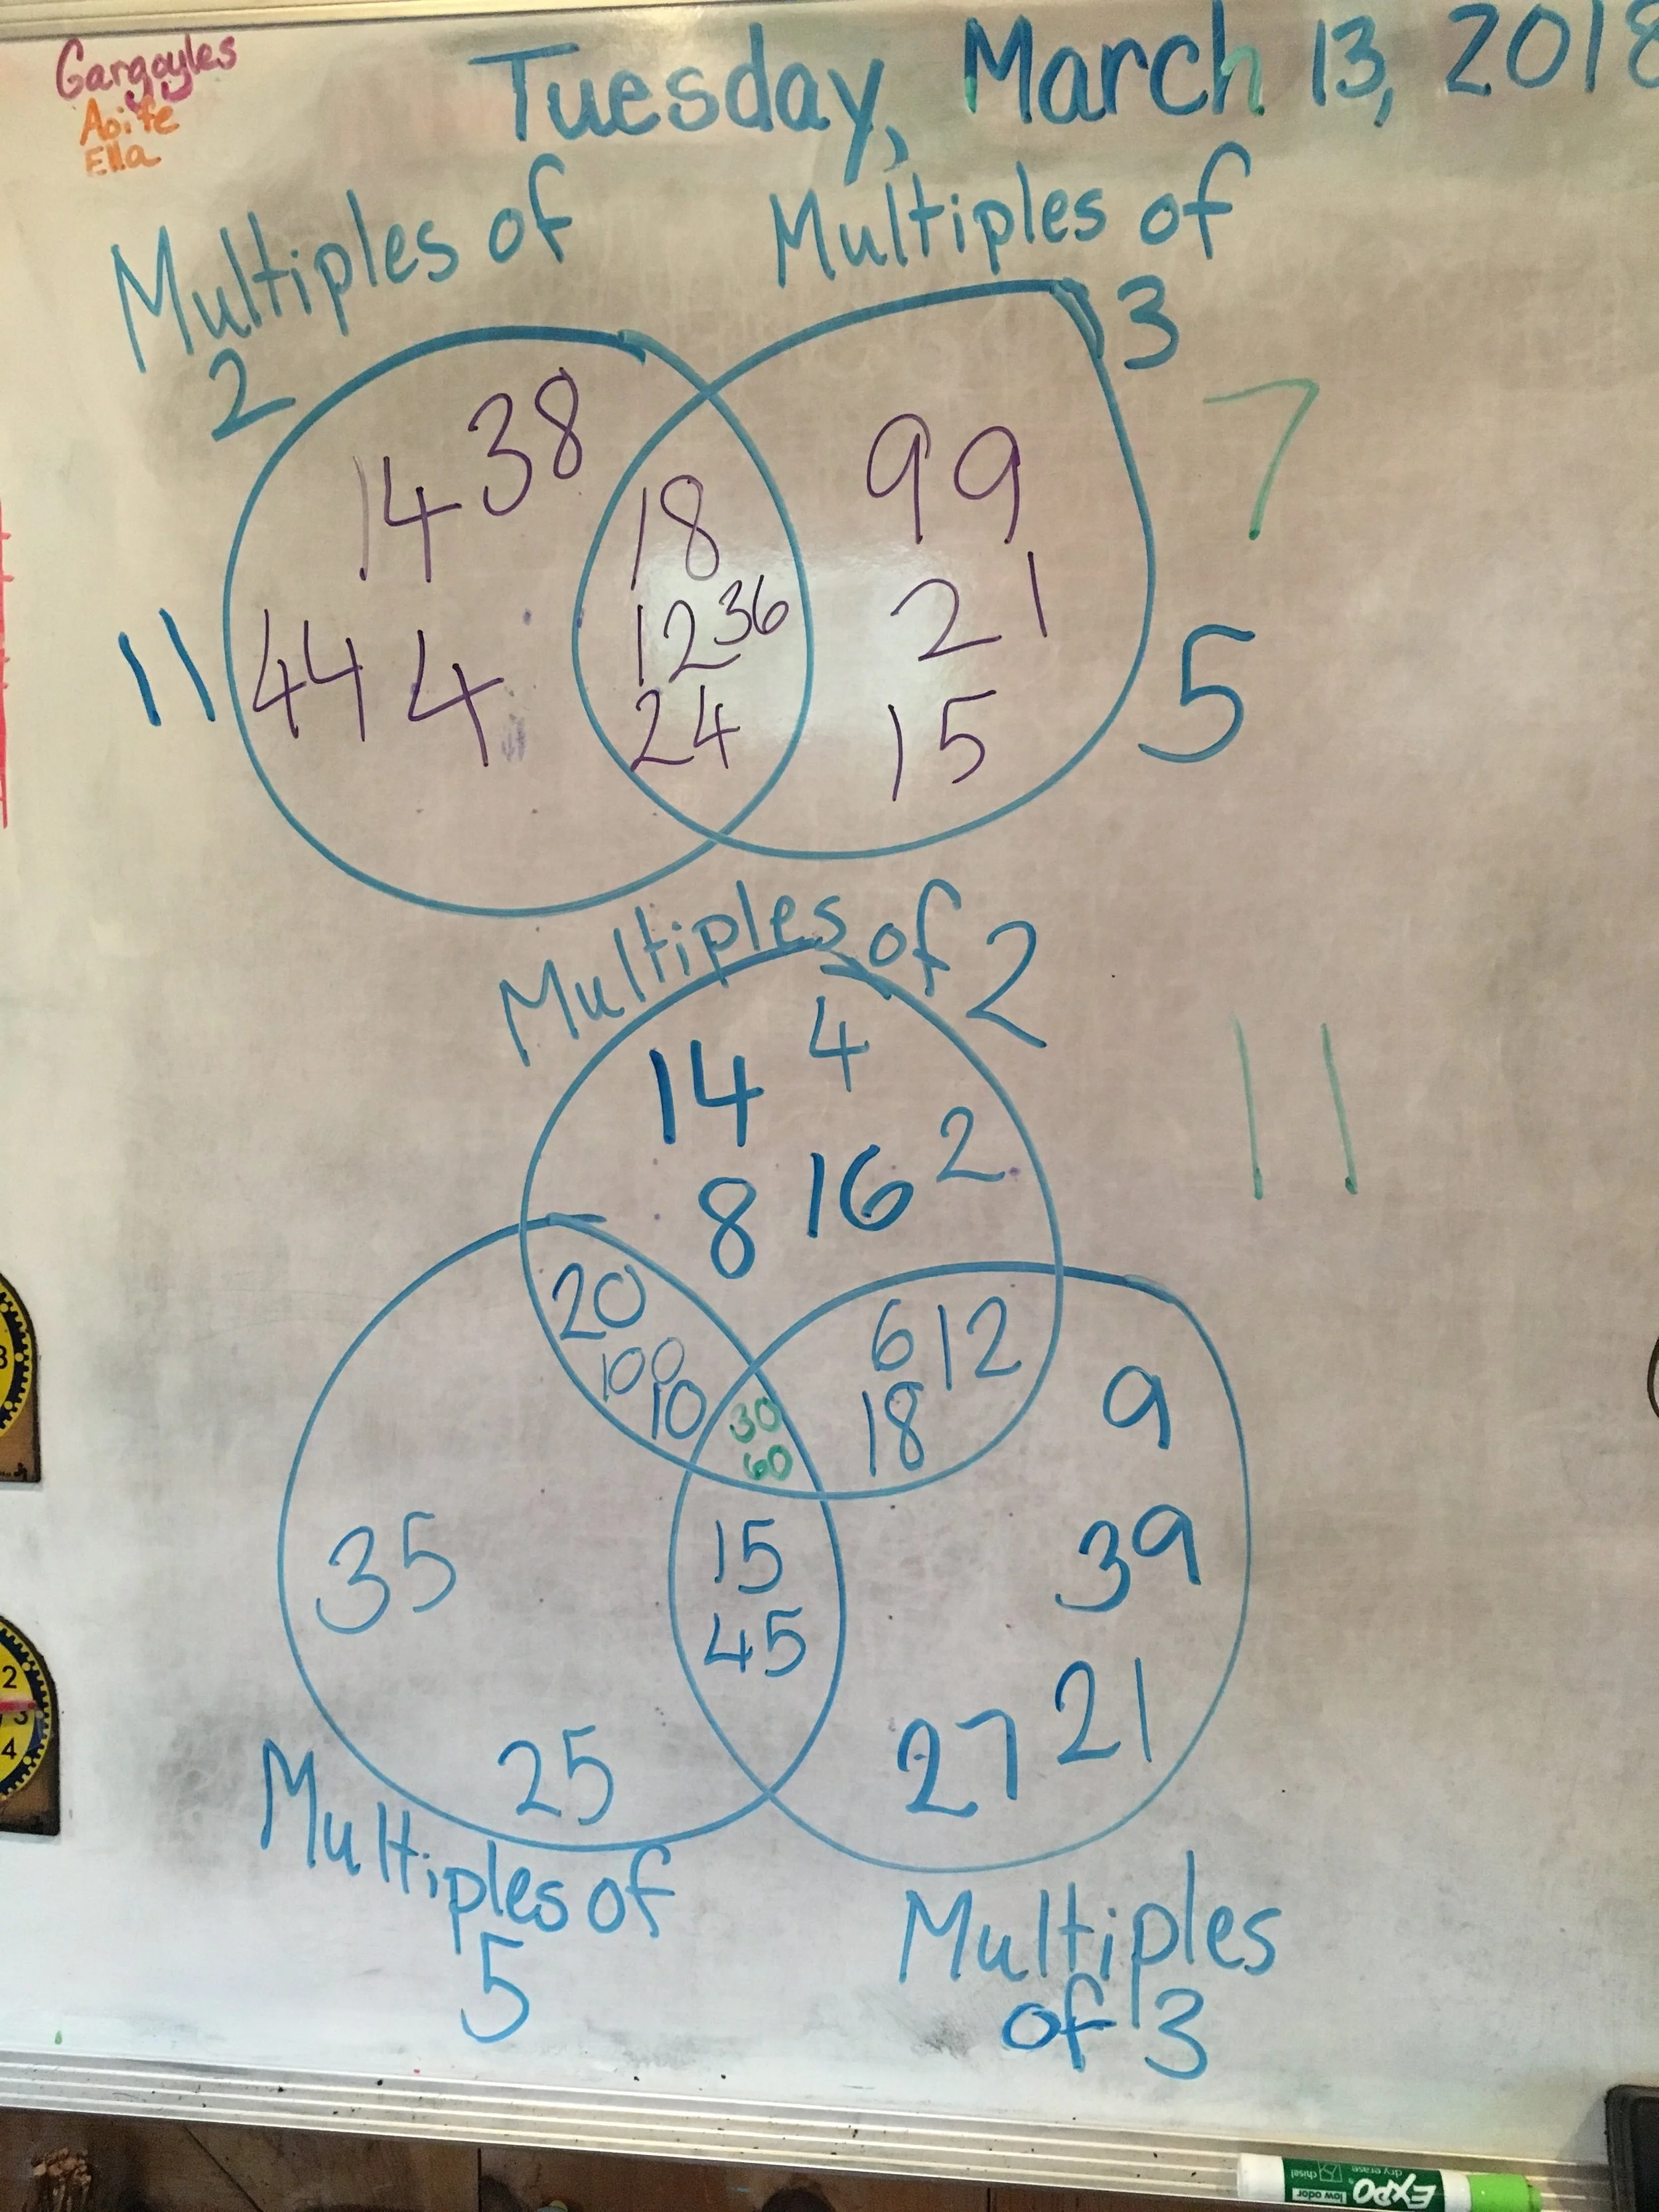 Gargoyles
Aoife
Ella
Tuesday, March 13, 2018
Multiples of
2
Multiples of
3
7
14 38
18
99
12 36
21
11
44 4
24
15
5
Multiples of 2
14 4
8 16 2
11
20
100
10
6 12
18
30
60
9
35
15
45
39
25
27 21
Multiples of
5
Multiples
of 3
3
2
3
4
EXPO
low odor
dry erase
chisel